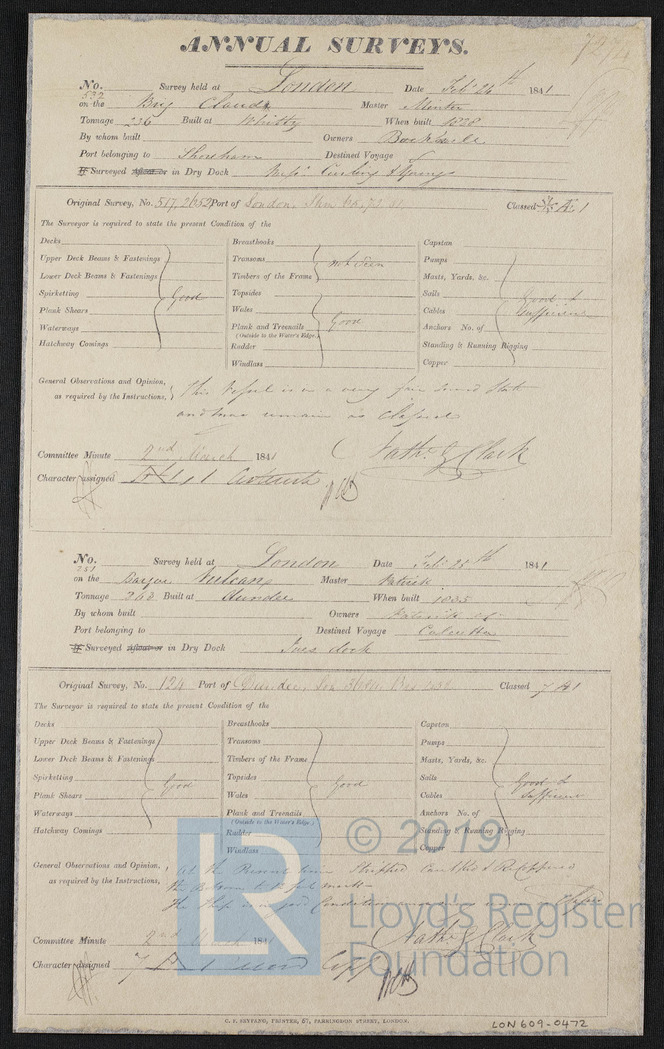 ANNUAL SURVEYS.
No. 592 Survey held at London Date Feby 24th 1841
on the Brig Claudia Master
Tonnage 236 Built at Whitby When built 1828
By whom built Owners
Port belonging to Shoreham Destined Voyage
If Surveyed Afloat or in Dry Dock Messrs Curling & Youngs
Original Survey, No. 517.2652 Port of London Classed A 1
The Surveyor is required to state the present Condition of the
Decks
Upper Deck Beams & Fastenings
Lower Deck Beams & Fastenings
Spirketting Good
Plank Shears
Waterways
Hatchway Comings
Breasthooks
Transoms not seen
Timbers of the Frame
Topsides
Wales
Plank and Treenails Good
(Outside to the Water's Edge.)
Rudder
Windlass
Capstan
Pumps
Masts, Yards, &c.
Sails Good &
Cables Sufficient
Anchors No. of
Standing & Running Rigging
Copper
General Observations and Opinion, This Vessel is in a very fair sound state
as required by the Instructions, and may remain as Classed
Committee Minute 2nd March 1841 Nathl G Clark
Character assigned
No. 251 Survey held at London Date Feby 25th 1841
on the Barque Vulcan Master Patrick
Tonnage 268 Built at Dundee When built 1835
By whom built Owners Patrick &c
Port belonging to Destined Voyage Calcutta
If Surveyed Afloat or in Dry Dock dock
Original Survey, No. 124 Port of Dundee Classed 7 A 1
The Surveyor is required to state the present Condition of the
Decks
Upper Deck Beams & Fastenings
Lower Deck Beams & Fastenings
Spirketting Good
Plank Shears
Waterways
Hatchway Comings
Breasthooks
Transoms
Timbers of the Frame
Topsides Good
Wales
Plank and Treenails
(Outside to the Water's Edge.)
Rudder
Windlass
Capstan
Pumps
Masts, Yards, &c.
Sails Good &
Cables Sufficient
Anchors No. of
Standing & Running Rigging
Copper
General Observations and Opinion, at the Present time Stripped Caulked & ReCoppered
as required by the Instructions, the Bottom to 12 feet mark
The Ship is in good Condition
Committee Minute 2nd March 1841 Nathl G Clark
Character assigned 7 A 1
© 2019
Lloyd's Register
Foundation
LR
C. F. SEYFANG, PRINTER, 57, FARRINGDON STREET, LONDON.
LON 609-0472